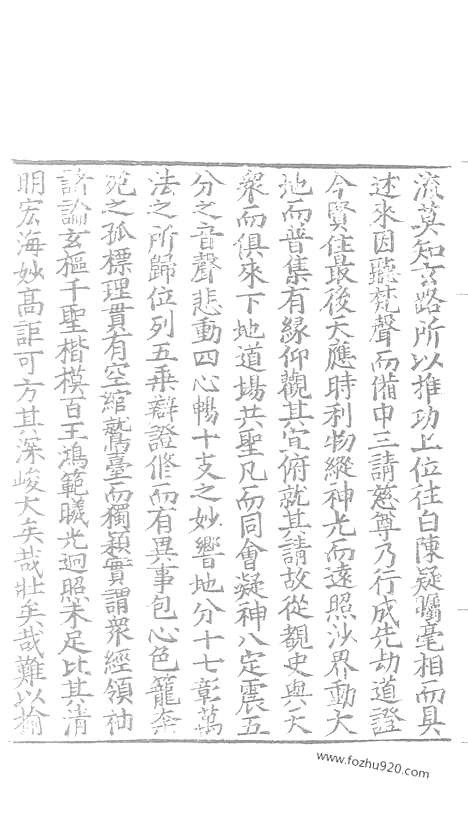 流莫知玄路所以推功上位往白陳疑囑毫相而具
述來因聽梵聲而備申三請慈尊乃行成先劫道證
今賢住最後天應時利物縱神光而遠照沙界動大
地而普集有緣仰觀其宜俯就其請故從覩史與大
衆而俱來下地道場共聖凡而同會凝神八定震五
分之音聲悲動四心暢十支之妙響地分十七章萬
法之所歸位列五乘辯證修而有異事包心色籠柰
苑之孤標理貫有空綰鷲臺而獨穎實謂衆經領袖
諸論玄樞千聖楷模百王鴻範曦光迥照未足比其清
明宏海妙高詎可方其深峻大矣哉壯矣哉難以揄
www.fozhu920.com